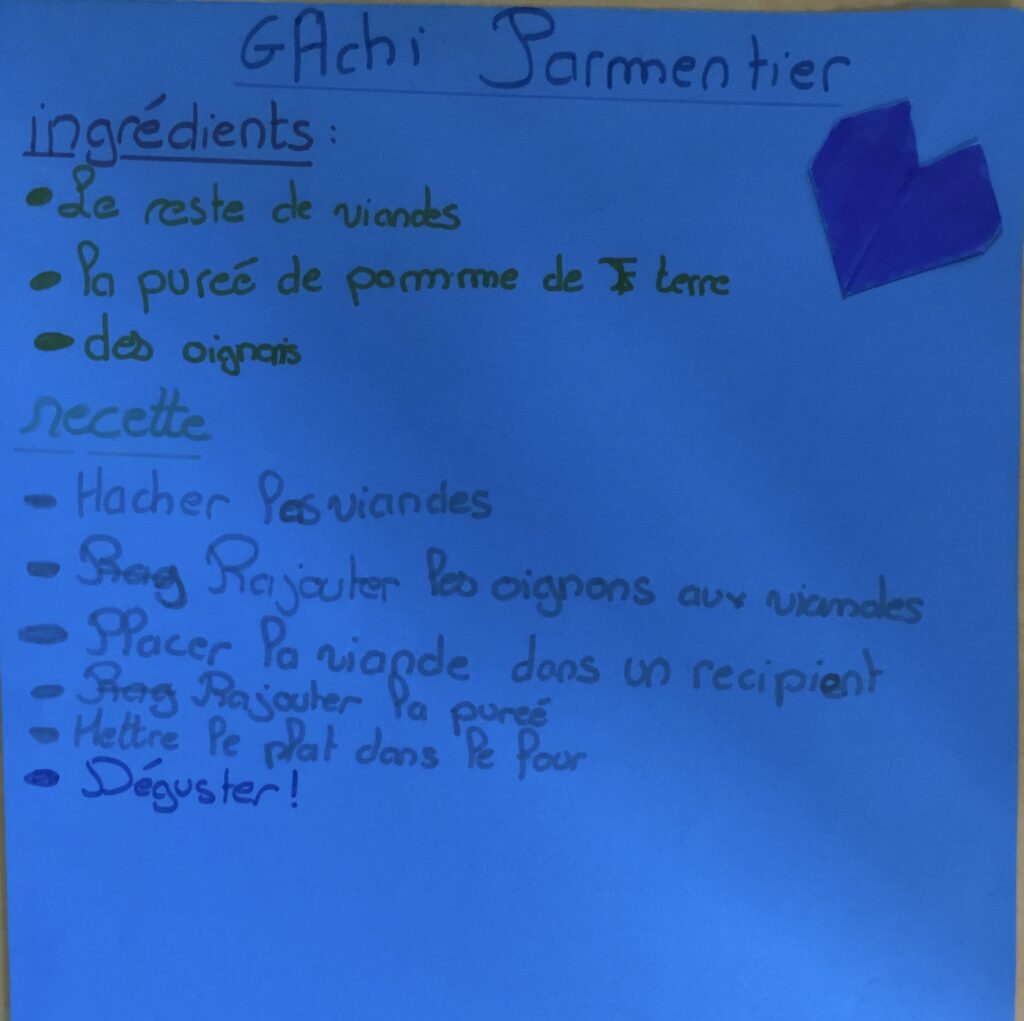 GAchi Parmentier
ingrédients :
• Le reste de viandes
• la pureé de pomme de terre
• des oignons
recette
- Hacher les viandes
- Rajouter les oignons aux viandes
- Placer la viande dans un recipient
- Rajouter la pureé
- Mettre le plat dans le four
• Déguster !